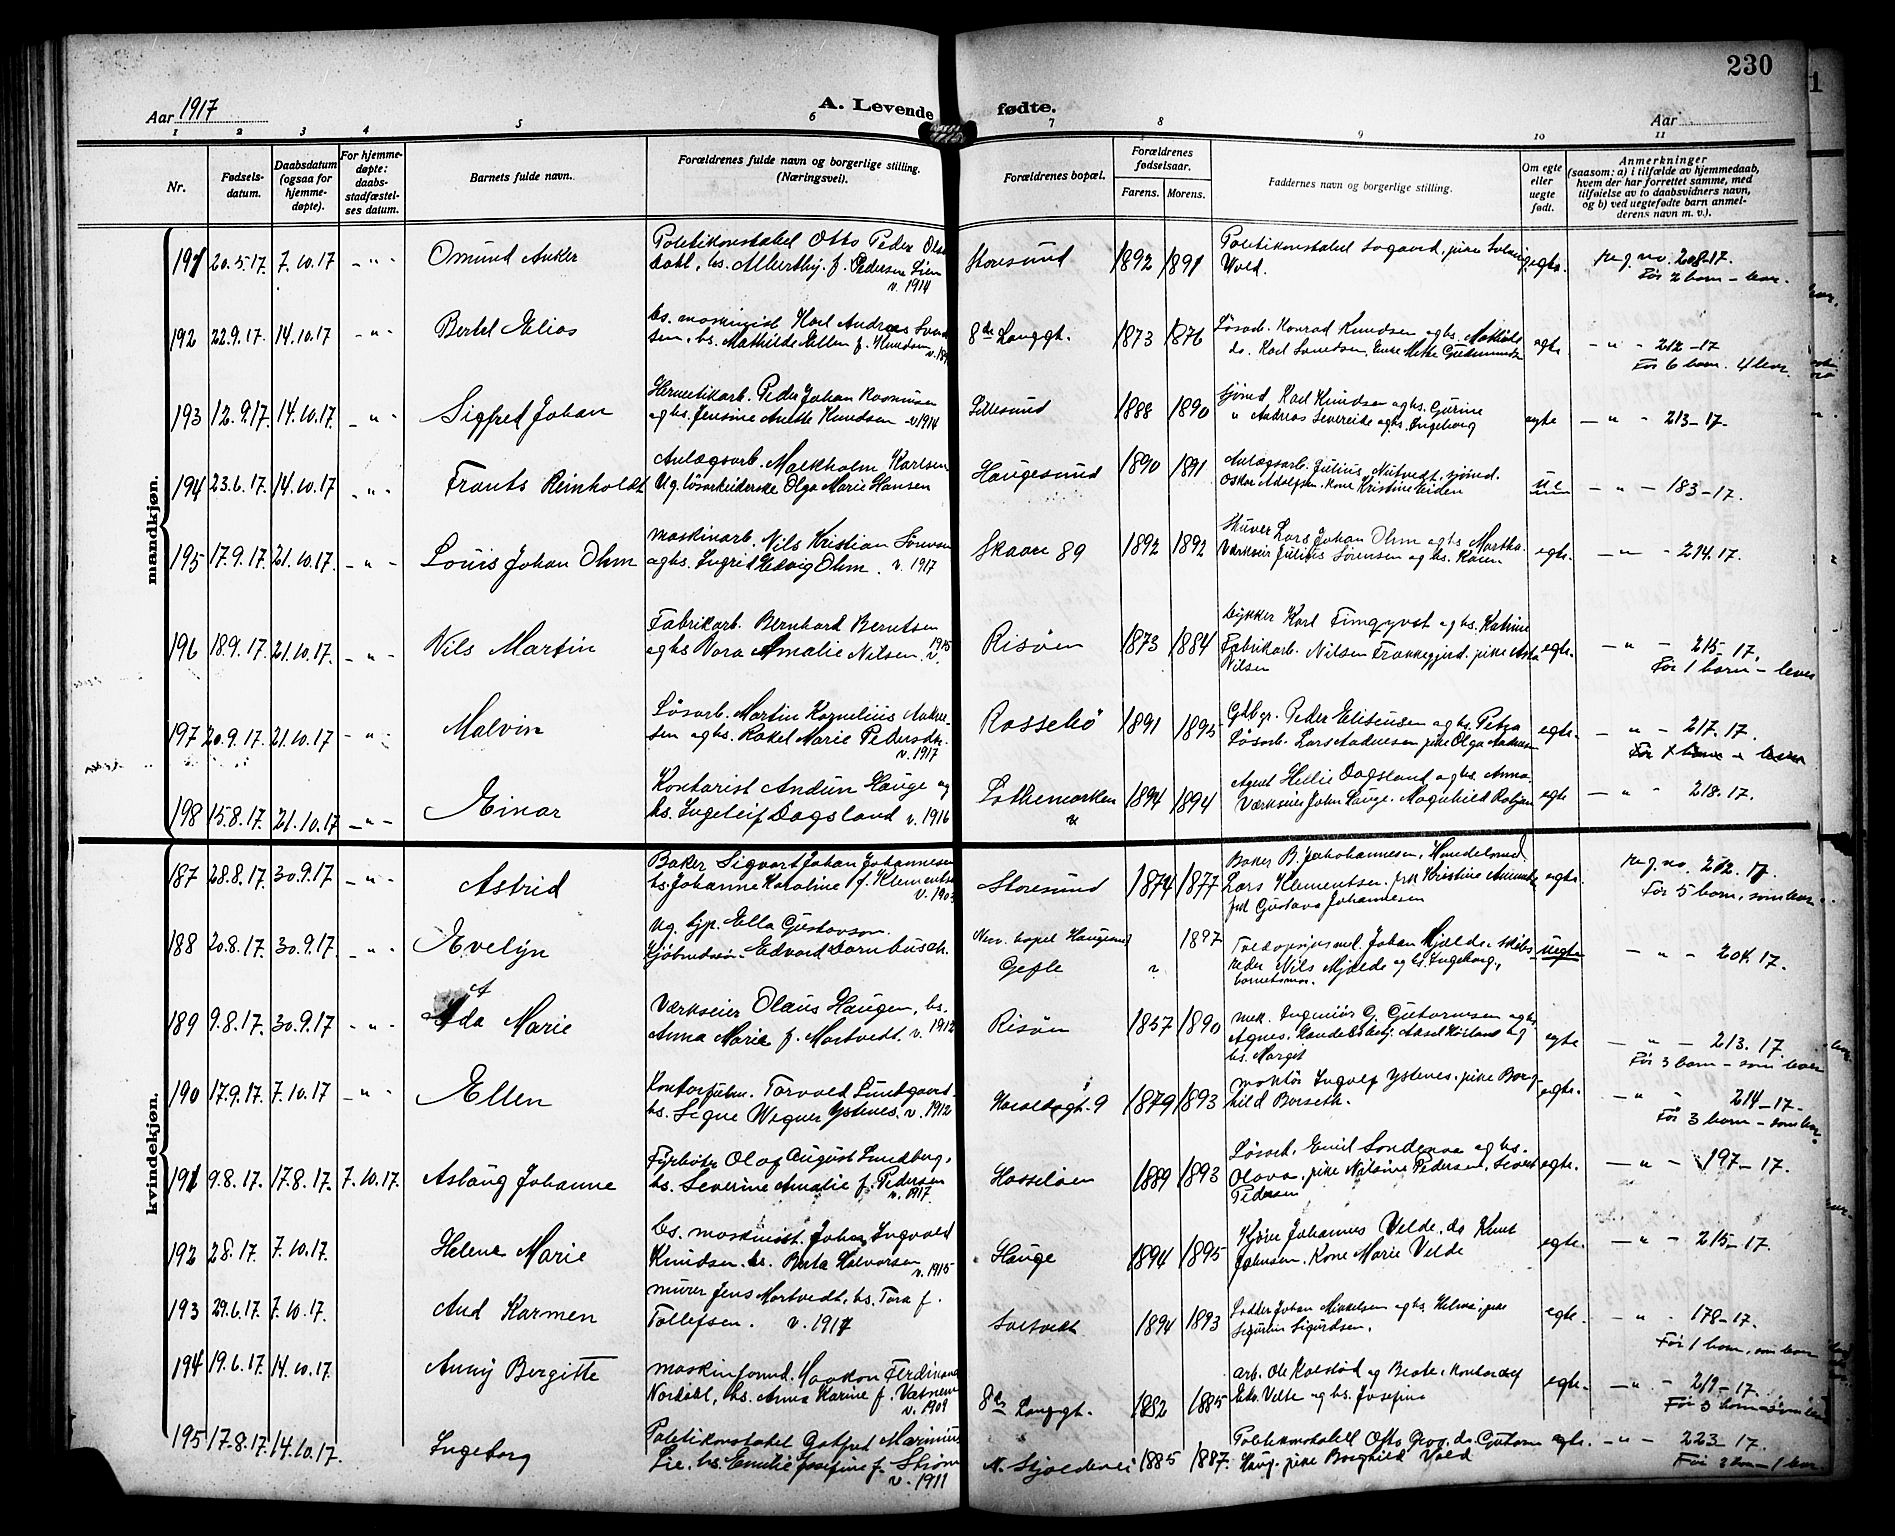 230
Aar 1917
A. Levende fødte.
Aar
1 2 3 4 5 6 7 8 9 10 11
Nr.
Fødsels-datum.
Daabsdatum (ogsaa for hjemme-døpte).
For hjemme-døpte: daabs-stadfæstel-ses datum.
Barnets fulde navn.
Forældrenes fulde navn og borgerlige stilling. (Næringsvei).
Forældrenes bopæl.
Forældrenes fødselsaar.
Farens. Morens.
Faddernes navn og borgerlige stilling.
Om egte eller uegte født.
Anmerkninger (saasom: a) i tilfælde av hjemmedaab, hvem der har forrettet samme, med tilføielse av to daabsvidners navn, og b) ved uegtefødte barn anmel-derens navn m. v.).
mandkjøn.
191 20.5.17. 7.10.17 - " - Osmund Anker
Politikonstabel Otto Peder Olsen
Dahl, hs. Alberthy f. Pedersen Lien
v. 1914
Storesund 1892 1891
Politikonstabel Sogaard, pike Solveig
Wold.
egte. reg. no. 208-17.
Før 2 barn - lever.
192 22.9.17. 14.10.17 - " - Bertel Elias
bs. maskinist Karl Andreas Svend
sen, hs. Mathilde Ellen f. Knudsen
8de Langgt. 1873 1876
Løsarb. Konrad Knudsen og hs. Mathilde
do. Karl Svendsen, Enke Mette Gudmundsen
egte - " - 212-17
Før 6 barn. 4 lever.
193 12.9.17. 14.10.17. - " - Sigfred Johan
Hermetikarb. Peder Johan Rasmussen
og hs. Jensine Anette Knudsen v 1914
Lillesund 1888 1890
Sjømd Karl Knudsen og hs. Gurine
" Andreas Severeide og hs. Ingeborg
egte - " - 213-17.
194 23.6.17. 14.10.17 - " - Frants Reinholdt
Anlægsarb. Malkholm Karlsen
Ug. løsarbeiderske Olga Marie Hansen
Haugesund 1890 1891
Anlægsarb. Julius Nutvedt, sjømd.
Oskar Adolfsen. kone Kristine Eiden
- " - 183-17.
195 17.9.17. 21.10.17. - " - Louis Johan Ohm
maskinarb. Nils Kristian Sørensen
og hs. Ingrid Hedvig Ohm. v. 1917
Skaare 89 1892 1892
Stuver Lars Johan Ohm og hs Martha.
Værkseier Julius Sørensen og hs. Karen
egte. - " - 214.17.
196 18.9.17. 21.10.17. - " - Nils Martin
Fabrikarb. Bernhard Berntsen
og hs Vora Amalie Nilsen. v. 1915
Risøen 1873 1884
Dykker Karl Finqvist og hs. Katrine
Fabrikarb. Nilsen Frakkegjerd. pike Asta
Nilsen
egte. - " - 215-17.
Før 1 barn - lever
197 20.9.17. 21.10.17 - " - Malvin
Løsarb. Martin Kornelius Andre-
sen og hs. Rakel Marie Pedersdtr.
v. 1917
Rossebø 1891 1895
Gdbr. Peder Elisensen og hs. Petra
Løsarb. Lars Andresen pike Olga Andresen
egte. - " - 217.17.
Før 1 barn - lever
198 15.8.17. 21.10.17 - " - Einar
Kontorist Andun Hauge og
hs. Ingeleif Dagsland v. 1916
Lothemarken 1894 1894
Agent Helie Dagsland og hs. Anna.
Værkseier John Hauge. Magnhild
egte - " - 218.17.
kvindekjøn.
187 28.8.17. 30.9.17 - " - Astrid
Baker Sigvart Johan Johannesen
hs. Johanne Karoline f. Klementsen
Storesund 1874 1877
Baker B. Johannesen, Handelsmd.
Lars Klementsen, frk Kristine
frk Gustava Johannesen
egte. reg. no. 212. 17.
Før 5 barn, som lever.
188 20.8.17. 30.9.17. - " - Evelyn
ug. tjp. Ella Gustavson.
Kjøbmdssøn. Edvard Dornbusch.
Nuv. bopel Haugesund
Gefle ? 1897
Toldopsynsmd. Johan Mjelde. skibs
reder Nils Mjelde og hs. Ingeborg,
barnets mor.
uegte - " - 204.17.
189 9.8.17. 30.9.17 - " - Ada Marie
Værkseier Olaus Haugen, hs.
Anna Marie f. Mortvedt. v. 1912
Risøen 1857 1890
mek. Ingeniør G. Gutormsen og hs.
Agnes. Handelsbetj. Aksel Horland og
hs. Margit
egte - " - 213.17.
Før 3 barn - som lever
190 17.9.17. 7.10.17 - " - Ellen
Kontorfuldm. Torvald Lundgaard.
hs. Signe Wegner Ystenes. v. 1912
Haraldsgt. 9 1879 1893
maktør Ingolf Ystenes. pike Borg-
hild Borseth.
egte. - " - 214-17.
Før 3 barn - som lever
191 9.8.17. 17.8.17. 7.10.17. Aslaug Johanne
Fyrbøter Olaf August Lundberg,
hs. Severine Amalie f. Pedersen
v. 1917.
Hasseløen 1889 1893
Løsarb. Emil Sondenaa og hs.
Olava. pike Nilsine Pedersen, Sivert
Pedersen
egte. - " - 197-17.
192 2.8.17. 7.10.17. Helene Marie
bs. maskinist. Johan Ingvald
Knudsen. hs. Berta Halvorsen
v. 1915
Hauge 1894 1895
Johannes Velde. do Knut
Johnsen. Kone Marie Velde
egte. - " - 215-17.
193 29.6.17. 7.10.17. Aud Karmen
murer Jens Mortvedt, hs. Tora f.
Tollefsen. v. 1917
Sørtvedt 1894 1893
Lodder Johan Mikkelsen og hs. Helma, pike
Sigurdsen.
egte. - " - 178-17.
Før 1 barn, som lever
194 19.6.17. 14.10.17. Anny Bergitte
maskinformd. Haakon Ferdinand
Nordahl, hs. Anna Karine f. Vatnem
v. 1909
8de Langgt. 1882 1885
arb. Ole Kolstød og Beate, kontorchef
Edv. Velle og hs. Josefine
egte. - " - 219-17.
Før 3 barn som lever
195 17.8.17. 14.10.17. Ingeborg
Politikonstabel Gotfred Marinius
Lie. hs. Emilie Josefine f. Strøm
v. 1911
N. Skjoldevei 1885 1887.
Politikonstabel Otto do. Gutorm
Haug. pike Borghild Vold
egte. - " - 223-17.
Før 2 barn - 1 lever.